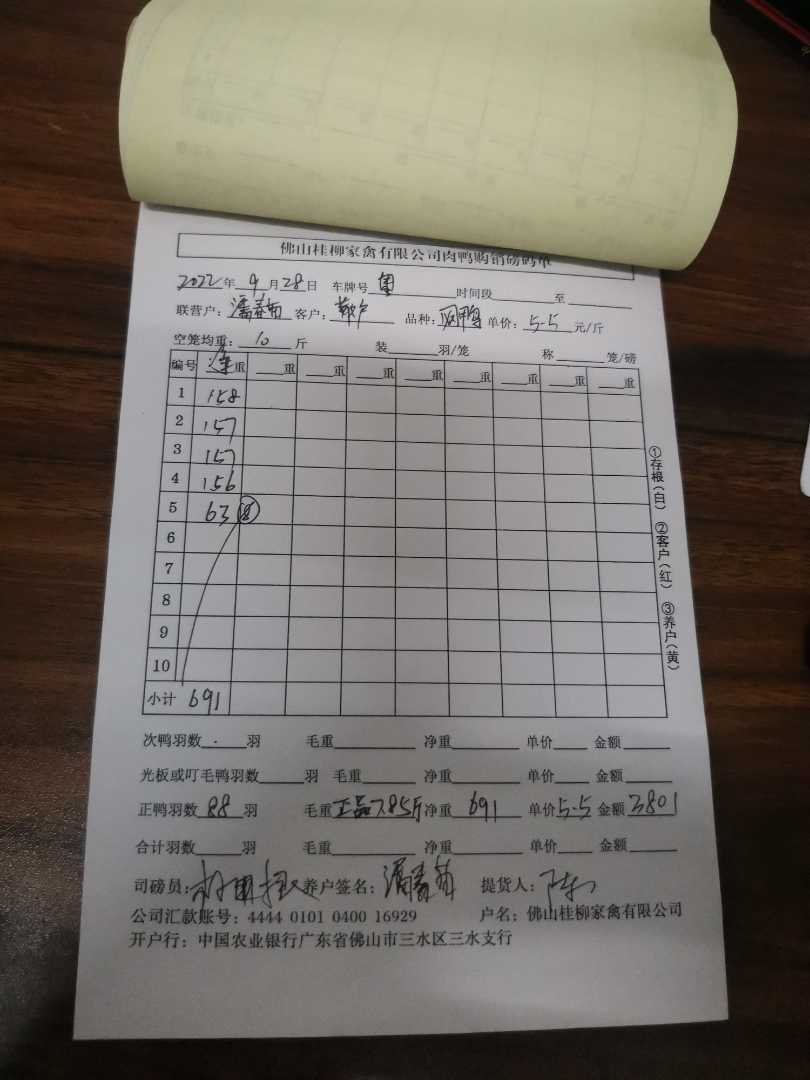 佛山桂柳家禽有限公司肉鸭购销磅码单
2022年 9 月 28 日 车牌号 时间段 至
联营户: 潘春苗 客户: 散户 品种: 单价: 5.5 元/斤
空笼均重: 10 斤 装 羽/笼 称 笼/磅
编号 净重 重 重 重 重 重 重 重 重
1 158
2 157
3 157
4 156
5 63 ⑧
6
7
8
9
10
小计 691
①存根(白) ②客户(红) ③养户(黄)
次鸭羽数 羽 毛重 净重 单价 金额
光板或叮毛鸭羽数 羽 毛重 净重 单价 金额
正鸭羽数 88 羽 毛重 正品7.85斤 净重 691 单价 5.5 金额 3801
合计羽数 羽 毛重 净重 单价 金额
司磅员: 养户签名: 潘春苗 提货人:
公司汇款账号: 4444 0101 0400 16929 户名: 佛山桂柳家禽有限公司
开户行: 中国农业银行广东省佛山市三水区三水支行